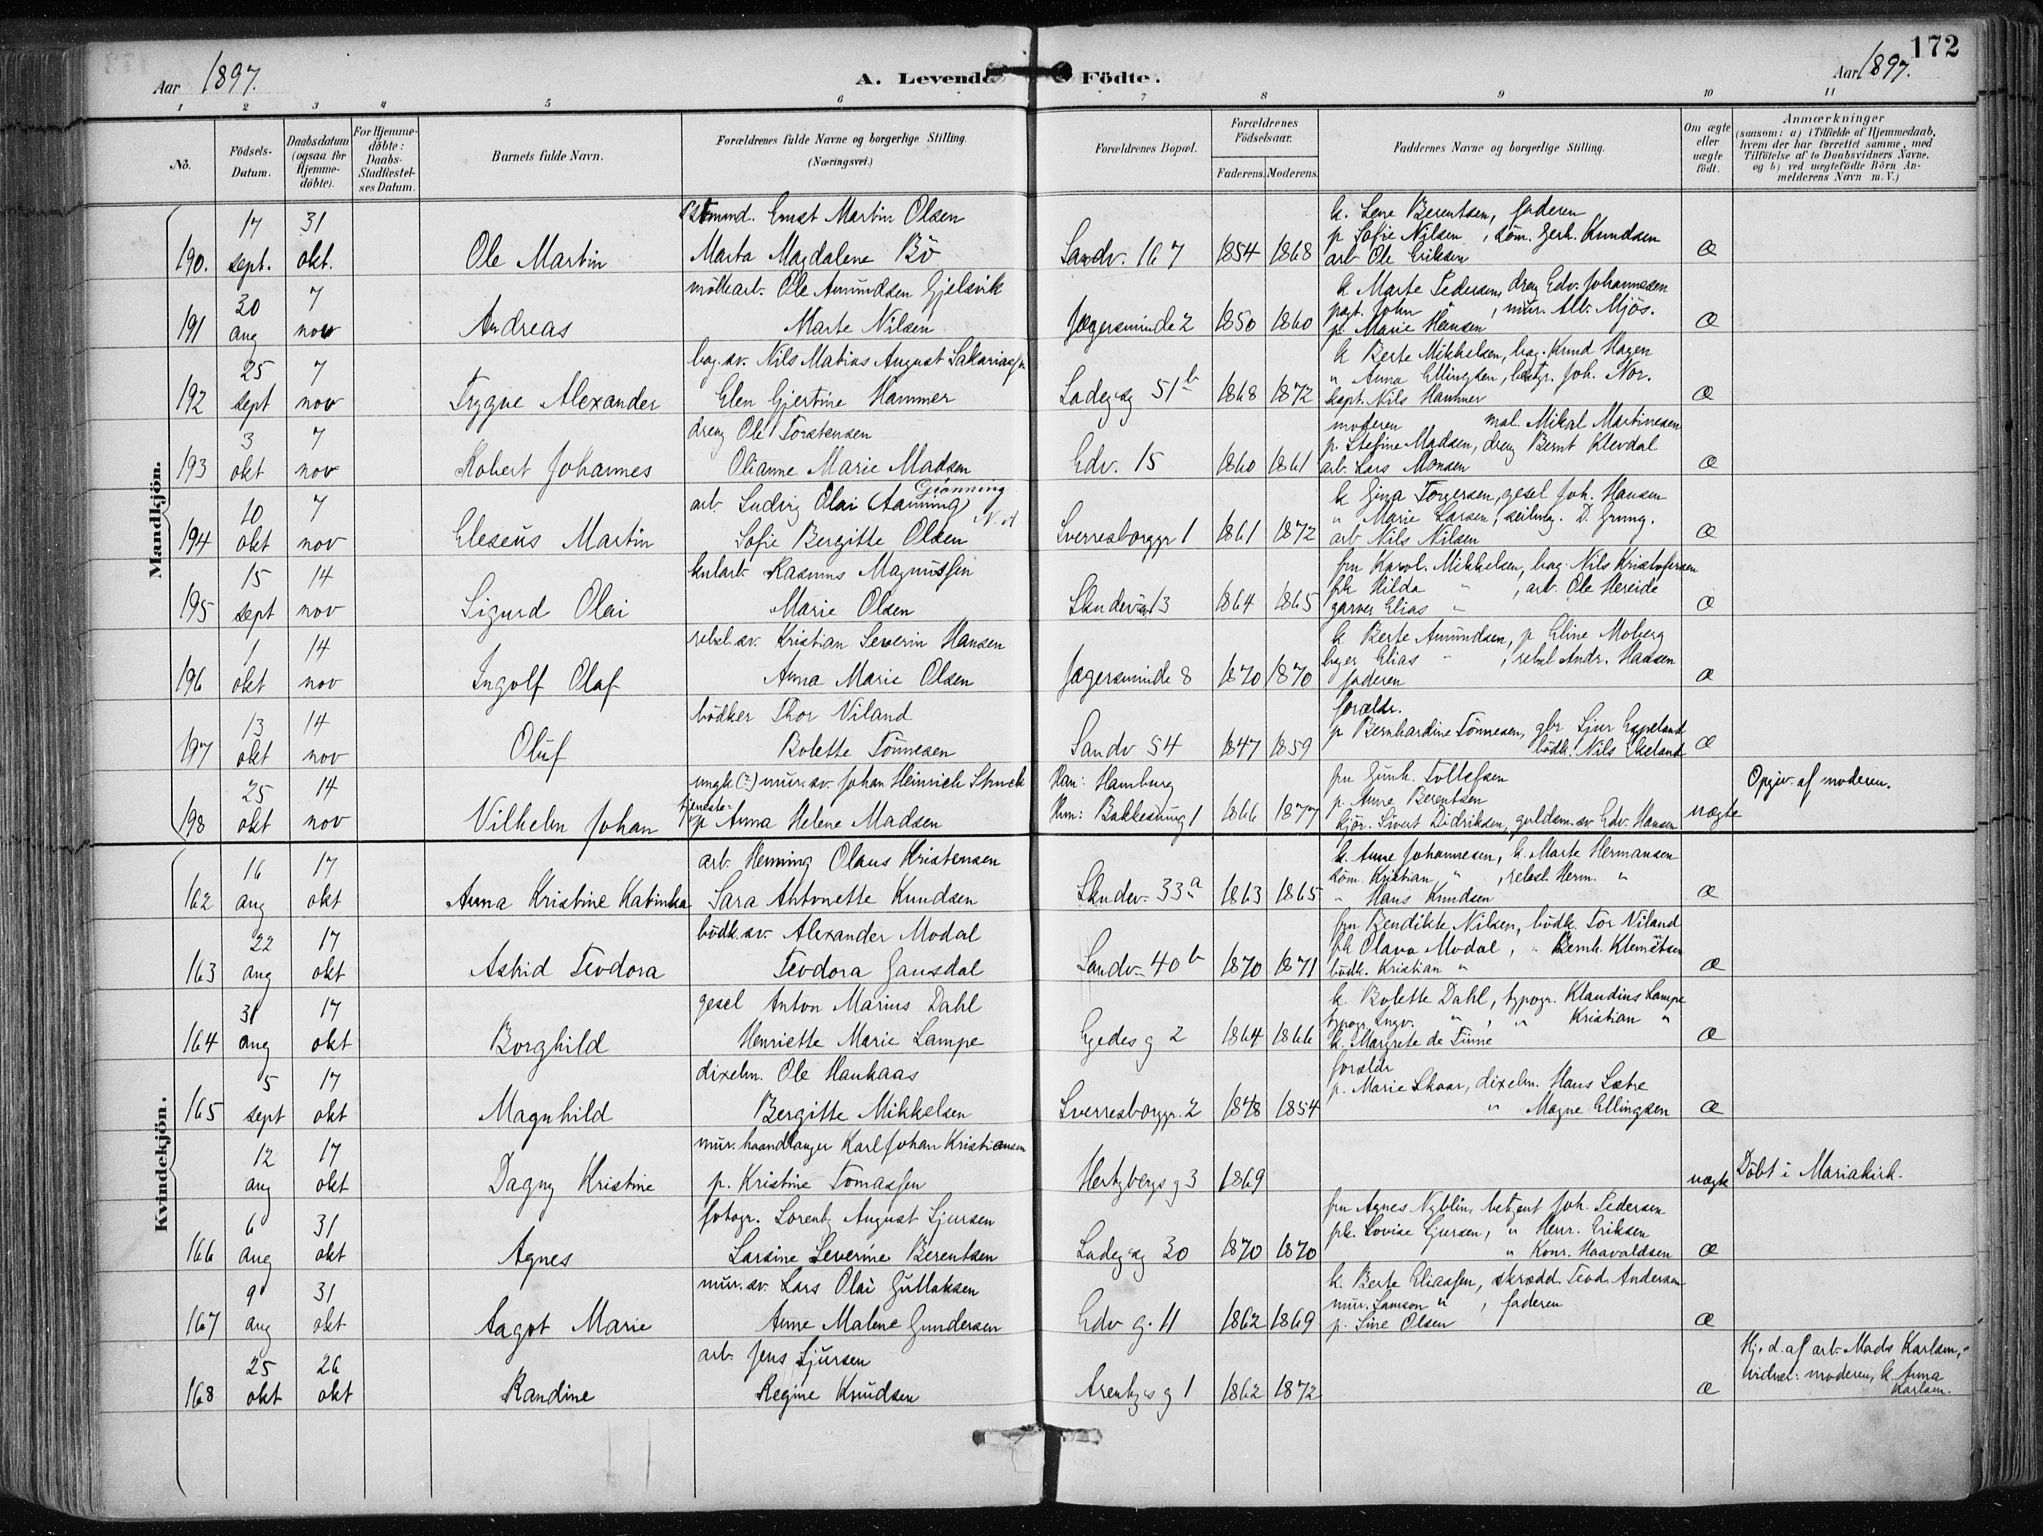 172
Aar 1897.
A. Levende Födte.
Aar 1897.
1 2 3 4 5 6 7 8 9 10 11
No. Födsels-Datum. Daabsdatum (ogsaa for Hjemmedöbte). For Hjemmedöbte: Daabs-Stadfæstelses Datum. Barnets fulde Navn. Forældrenes fulde Navne og borgerlige Stilling. (Næringsvei.) Forældrenes Bopæl. Forældrenes Födselsaar. Faderens. Moderens. Faddernes Navne og borgerlige Stilling. Om ægte eller uægte födt. Anmærkninger (saasom: a) i Tilfælde af Hjemmedaab, hvem der har forrettet samme, med Tilföielse af to Daabsvidners Navne, og b) ved uægtefödte Börn Anmelderens Navn m. V.)
Mandkjön.
190. 17 sept. 31 okt. Ole Martin
Ernst Martin Olsen
Marta Magdalene Bö
Sandv. 167 1854 1868
k. Lene Berentsen, faderen
p Sofie Nilsen, söm. Gerh. Knudsen
arb Ole Eriksen
æ
191 30 aug 7 nov Andreas
möllearb. Ole Amundsen Gjelsvik
Marte Nilsen
Jægersminde 2 1850 1860
k Marte Pedersen, dreng Edv. Johannesen
John, mur. Alb. Mjös.
p. Marie Hansen
æ
192 25 sept 7 nov Trygve Alexander
bag. sv. Nils Matias August Sakariassen
Elen Gjertine Hammer
Ladeg g 51b 1868 1872
k Berte Mikkelsen, bag. Knud Hagen
" Anna Ellingsen, Joh. Nor.
kapt. Nils Hammer
æ
193 3 okt 7 nov Robert Johannes
dreng Ole Torstensen
Olianne Marie Madsen
Edv. 15 1860 1861
moderen mal. Mikal Martinesen
p. Stefine Madsen, dreng Bernt Klevdal
arb. Lars Monsen
æ
194 10 okt 7 nov Eleseus Martin
arb. Ludvig Olai (Aanning) Grönning
Sofie Bergitte Olsen
Sverresborggr 1 1861 1872
k Gina Torgersen, gesel Joh. Hansen
" Marie Larsen, seilmg. D. Grung.
arb Nils Nilsen
æ
195 15 sept 14 nov Sigurd Olai
kularb. Rasmus Magnussen
Marie Olsen
Skudev 13 1864 1865
fru Karol. Mikkelsen, bag. Nils Kristofersen
frk Hilda ", arb. Ole Hereide
garver Elias "
æ
196 1 okt 14 nov Ingolf Olaf
rebsl. sv. Kristian Severin Hansen
Anna Marie Olsen
Jægersminde 8 1870 1870
k Berte Amundsen, p Eline Moberg
Elias ", rebsl Andr. Hansen
faderen
æ
197 13 okt 14 nov Oluf
bödker Thor Viland
Bolette Tönnesen
Sandv 54 1847 1859
forældr.
p Bernhardine Tönnesen, Sjur Espeland
bödk. Nils Ekeland
æ
198 25 okt 14 nov Vilhelm Johan
ungk (?) mur. sv. Johan Heinrich Struck
tjeneste p Anna Helene Madsen
Han: Hamburg
Hun: Bakkesmug 1 1866 1877
fru Gunh. Tollefsen
p. Anne Berentsen
kjör. Sivert Didriksen, guldsm. sv Edv. Hansen
uægte
Opgiv. af moderen.
Kvindekjön.
162 16 aug 17 okt Anna Kristine Katinka
arb. Henning Olaus Kristensen
Sara Antonette Knudsen
Skudev. 33a 1863 1865
k. Anne Johannesen, k. Marte Hermansen
söm. Kristian ", rebsl. Herm. "
" Hans Knudsen
æ
163 22 aug 17 okt Astrid Teodora
bödk. sv. Alexander Modal
Teodora Gausdal
Sandv. 40b 1870 1871
fru Bendikte Nilsen, bödk. Tor Viland
frk Olava Modal, " Bernh. Klemetsen
bödk. Kristian "
æ
164 31 aug 17 okt Borghild
gesel Anton Marius Dahl
Henriette Marie Lampe
Egedes g 2 1864 1866
k. Bolette Dahl, typogr. Klaudius Lampe
typogr. Ingv. ", " Kristian "
k. Margrete de Finne
æ
165 5 sept 17 okt Magnhild
dixelm. Ole Haukaas
Bergitte Mikkelsen
Sverresborggr. 2 1848 1854
forældr
p. Marie Skaar, dixelm. Hans Sætre
" Magne Ellingsen
æ
12 aug 17 okt Dagny Kristine
mur. haandlanger Karl Johan Kristiansen
p. Kristine Tomassen
Hertzbergs g 3 1869
uægte
Döbt i Mariakirk.
166 6 aug 31 okt Agnes
fotogr. Lorentz August Sjursen
Larsine Severine Berentsen
Ladeg g 30 1870 1870
fru Agnes Nyblin, betjent Joh. Pedersen
frk. Lovise Sjursen, " Henr. Eriksen
" Konr. Haavaldsen
æ
167 9 aug 31 okt Aagot Marie
mur. sv. Lars Olai Gullaksen
Anne Malene Gundersen
Edv g. 11 1862 1869
k. Berte Eliassen, skrædd. Teod. Andersen
mur. Samson ", faderen
p. Sine Olsen
æ
168 25 okt 26 okt Randine
arb. Jens Sjursen
Regine Knudsen
Arentzes g 1 1862 1872
æ
Hj. d. af arb. Mads Karlsen,
vidner: moderen, k. Anna Karlsen.